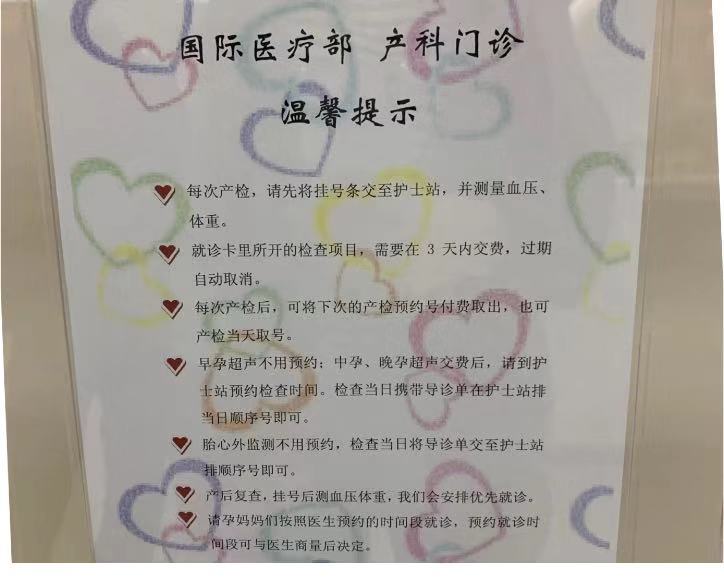 国际医疗部 产科门诊
温馨提示
每次产检，请先将挂号条交至护士站，并测量血压、
体重。
就诊卡里所开的检查项目，需要在 3 天内交费，过期
自动取消。
每次产检后，可将下次的产检预约号付费取出，也可
产检当天取号。
早孕超声不用预约；中孕、晚孕超声交费后，请到护
士站预约检查时间。检查当日携带导诊单在护士站排
当日顺序号即可。
胎心外监测不用预约，检查当日将导诊单交至护士站
排顺序号即可。
产后复查，挂号后测血压体重，我们会安排优先就诊。
请孕妈妈们按照医生预约的时间段就诊，预约就诊时
间段可与医生商量后决定。